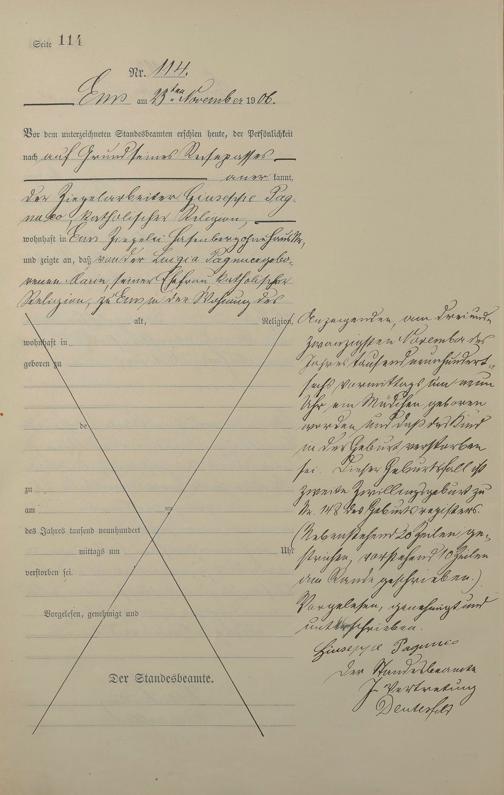 Seite 114
Nr. 114.
Ems am 23ten November 1906.
Vor dem unterzeichneten Standesbeamten erschien heute, der Persönlichkeit
nach auf Grund seines Reisepasses
anerkannt,
der Ziegelarbeiter Giuseppe
katholischer Religion,
wohnhaft in Ems Ziegelei ohne Haus Nr,
und zeigte an, daß von der Luigia gebo-
renen seiner Ehefrau katholischer
Religion, zu Ems, in der Wohnung des
alt, Religion,
wohnhaft in
geboren zu
de
zu
am
des Jahres tausend neunhundert
mittags um Uhr
verstorben sei.
Vorgelesen, genehmigt und
Der Standesbeamte.
Anzeigenden, am dreiund-
zwanzigsten November des
Jahres tausend neunhundert
sechs vormittags um neun
Uhr ein Mädchen geboren
worden und daß das Kind
in der Geburt verstorben
sei. Dieser Geburtsfall ist
zweite Zwillingsgeburt zu
Nr. 148 des Geburtsregisters.
(Nebenstehend 20 Zeilen ge-
strichen, vorstehend 10 Zeilen
am Rande geschrieben.)
Vorgelesen, genehmigt und
unterschrieben.
Giuseppe
Der Standesbeamte
In Vertretung